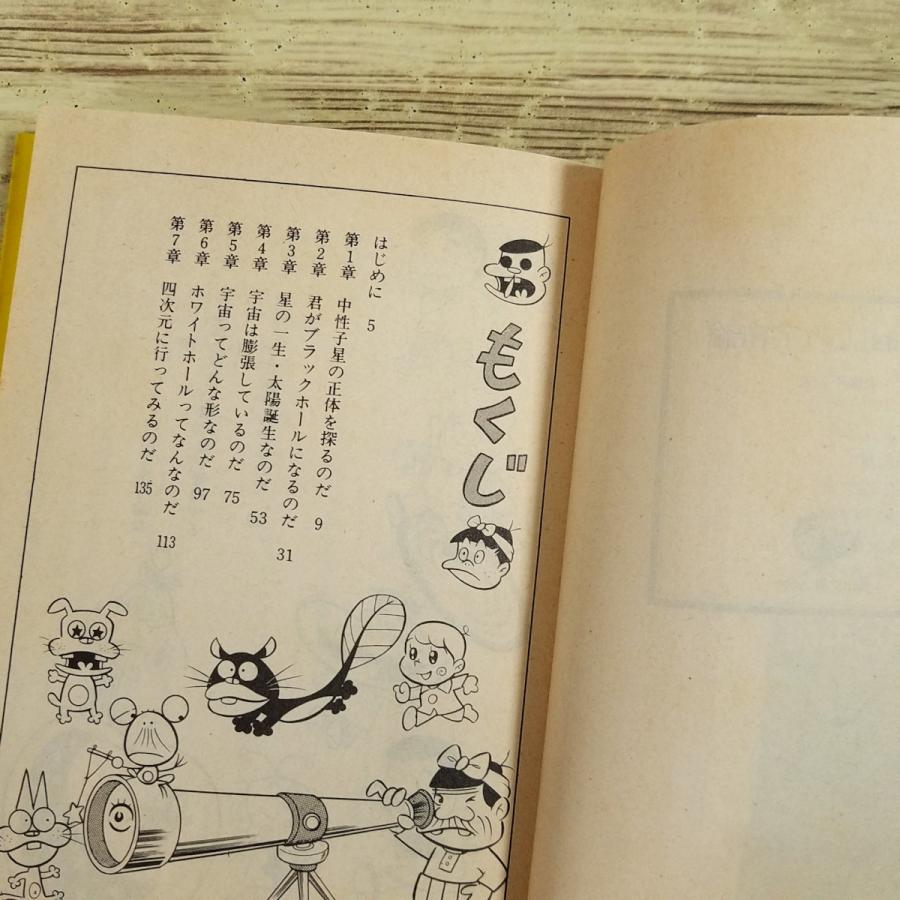 もくじ
はじめに 5
第1章 中性子星の正体を探るのだ 9
第2章 君がブラックホールになるのだ 31
第3章 星の一生・太陽誕生なのだ 53
第4章 宇宙は膨張しているのだ 75
第5章 宇宙ってどんな形なのだ 97
第6章 ホワイトホールってなんなのだ 113
第7章 四次元に行ってみるのだ 135